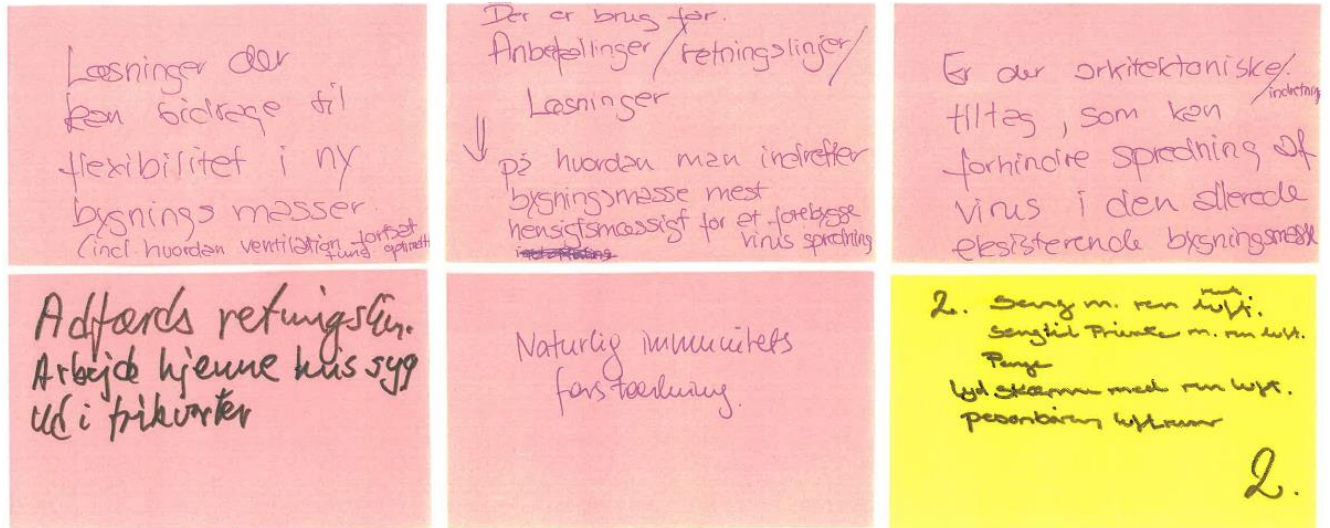 Løsninger der
kan bidrage til
flexibilitet i ny
bygnings masser.
(incl. hvordan ventilation fortsat
fung optimalt
Der er brug for.
Anbefallinger/retningslinjer/
Løsninger
⇓ på hvordan man indretter
bygningsmasse mest
hensigtsmæssigt for et forebygge
virus spredning
Er der arkitektoniske/
indretning
tiltag, som kan
forhindre spredning af
virus i den allerede
eksisterende bygningsmasse
Adfærds retningslin.
Arbejde hjemme hvis syg
Ud i frikvarter
Naturlig immunitets
forstærkning.
2. Seng m. ren luft.
Seng til Private m. ren luft.
Penge
Lyd skærme med ren luft.
2.